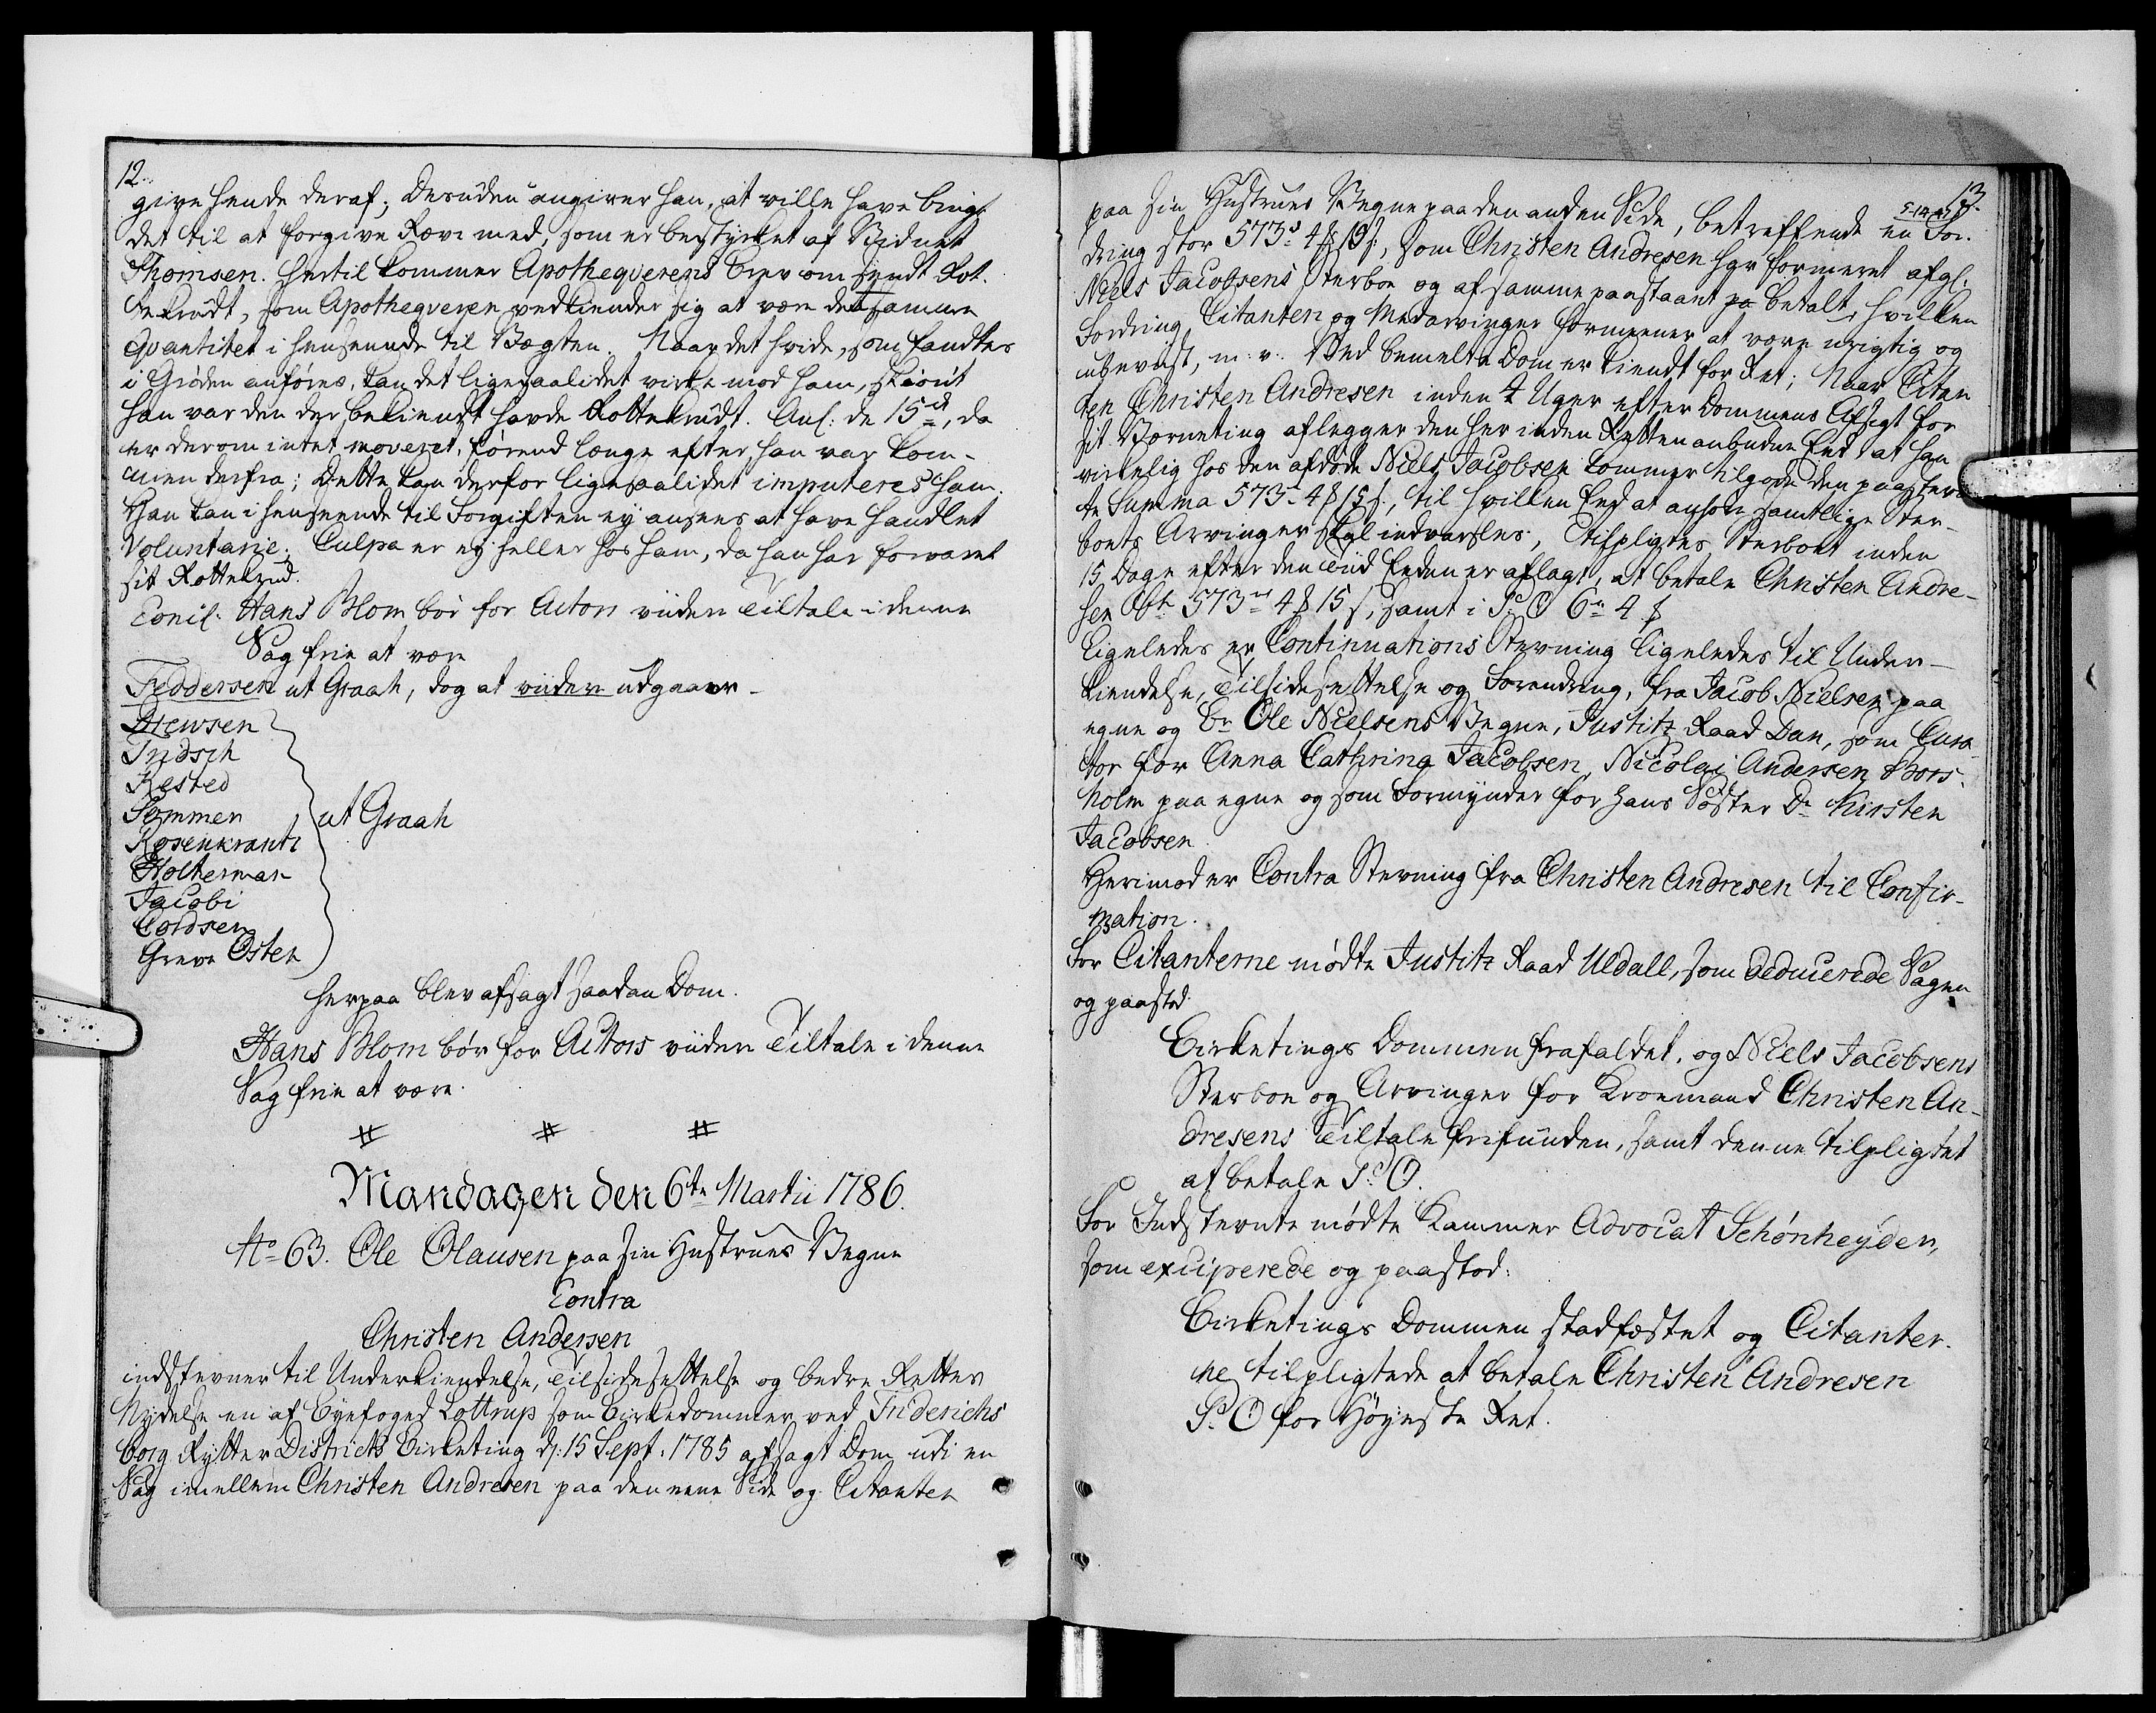 12.
give hende deraf; Desuden angiver han, at ville have brugt
det til at forgive Ræve med, som er bestyrket af Vidnet
Thomsen. Hertil kommer Apothequerens brev om sendt Rot-
tekrudt, som Apothequeren vedkiender sig at være det samme
Qvantitet i henseende til Vægten. Naar det hvide, som fandtes
i Grøden anføres, kan det ligesaalidet virke mod ham, skiønt
han var den der bekiendt havde Rottekrudt. Anl: de 15 rd, da
er derom intet moveret, førend længe efter, han var kom-
men derfra; Dette kan derfor ligesaalidet imputeres ham.
Han kan i henseende til Forgiften ey ansees at have handlet
Voluntarie. Culpa er ey heller hos ham, da han har forvaret
sit Rottekrud.
Concl. Hans Blom bør for Actors viidere Tiltale i denne
Sag frie at være
Feddersen ut Graah, dog at viidere udgaaer.
Drewsen
Tridsch
Kested
Sommer
Rosenkrantz
Holterman
Jacobi
Coldsen
Greve Osten
ut Graah
Herpaa blev afsagt saadan Dom.
Hans Blom bør for Actors viidere Tiltale i denne
Sag frie at være.
# # #
Mandagen den 6te Martii 1786.
No 63. Ole Olausen paa sin Hustrues Vegne
Contra
Christen Andersen
indstevner til Underkiendelse, Tilsidesættelse og bedre Rettes
Nydelse en af Byefoged Lottrup som Birkedommer ved Friderichs
borg Rytter Districts Birketing d: 15 Sept: 1785 afsagt Dom udi en
Sag imellem Christen Andresen paa den eene Side og Citanten
13.
paa sin Hustrues Vegne paa den anden Side, betreffende en For-
dring stor 573 rd 4 ₰ 15 s, som Christen Andresen har formeret afgl.
Niels Jacobsens Sterboe og af samme paastaaet sig betalt, hvilken
Fordring Citanten og Medarvinger formeener at være urigtig og
ubeviist, m: v: Ved bemelte Dom er kiendt for Ret; Naar Citan
ten Christen Andresen inden 4 Uger efter Dommens Afsigt for
sit Værneting aflegger den her inden Retten anbudne Eed at han
virkelig hos den afdøde Niels Jacobsen kommer tilgode den paastevn
te Summa 573 rd 4 ₰ 15 s, til hvilken Eed at anhøre samtlige Ster-
boets Arvinger skal indvarsles, tilpligtes Sterboet inden
15 Dage efter den Tiid Eeden er aflagt, at betale Christen Andre-
sen bte 573 rd 4 ₰ 15 s, samt i P: O 6 rd 4 ₰
Ligeledes er Continuations Stevning ligeledes til Under-
kiendelse, Tilsidesættelse og Forandring, fra Jacob Nielsen paa
egne og Br Ole Nielsens Vegne, Justitz Raad Dan, som Cura-
tor for Anna Cathrina Jacobsen, Nicolai Andersen Bors-
holm paa egne og som Formynder for hans Søster Dr Kirsten
Jacobsen
Herimod er Contra Stevning fra Christen Andresen til Confir-
mation.
For Citanterne mødte Justitz Raad Uldall, som deducerede Sagen
og paastod:
Birketings Dommen frafaldet, og Niels Jacobsens
Sterboe og Arvinger for Kroemand Christen An-
dresens Tiltale frifunden, samt denne tilpligtet
at betale P: O.
For Indstevnte mødte Kammer Advocat Schønheyder,
som exciperede og paastod:
Birketings Dommen stadfæstet og Citanter-
ne tilpligtede at betale Christen Andresen
P: O for Høyeste Ret.